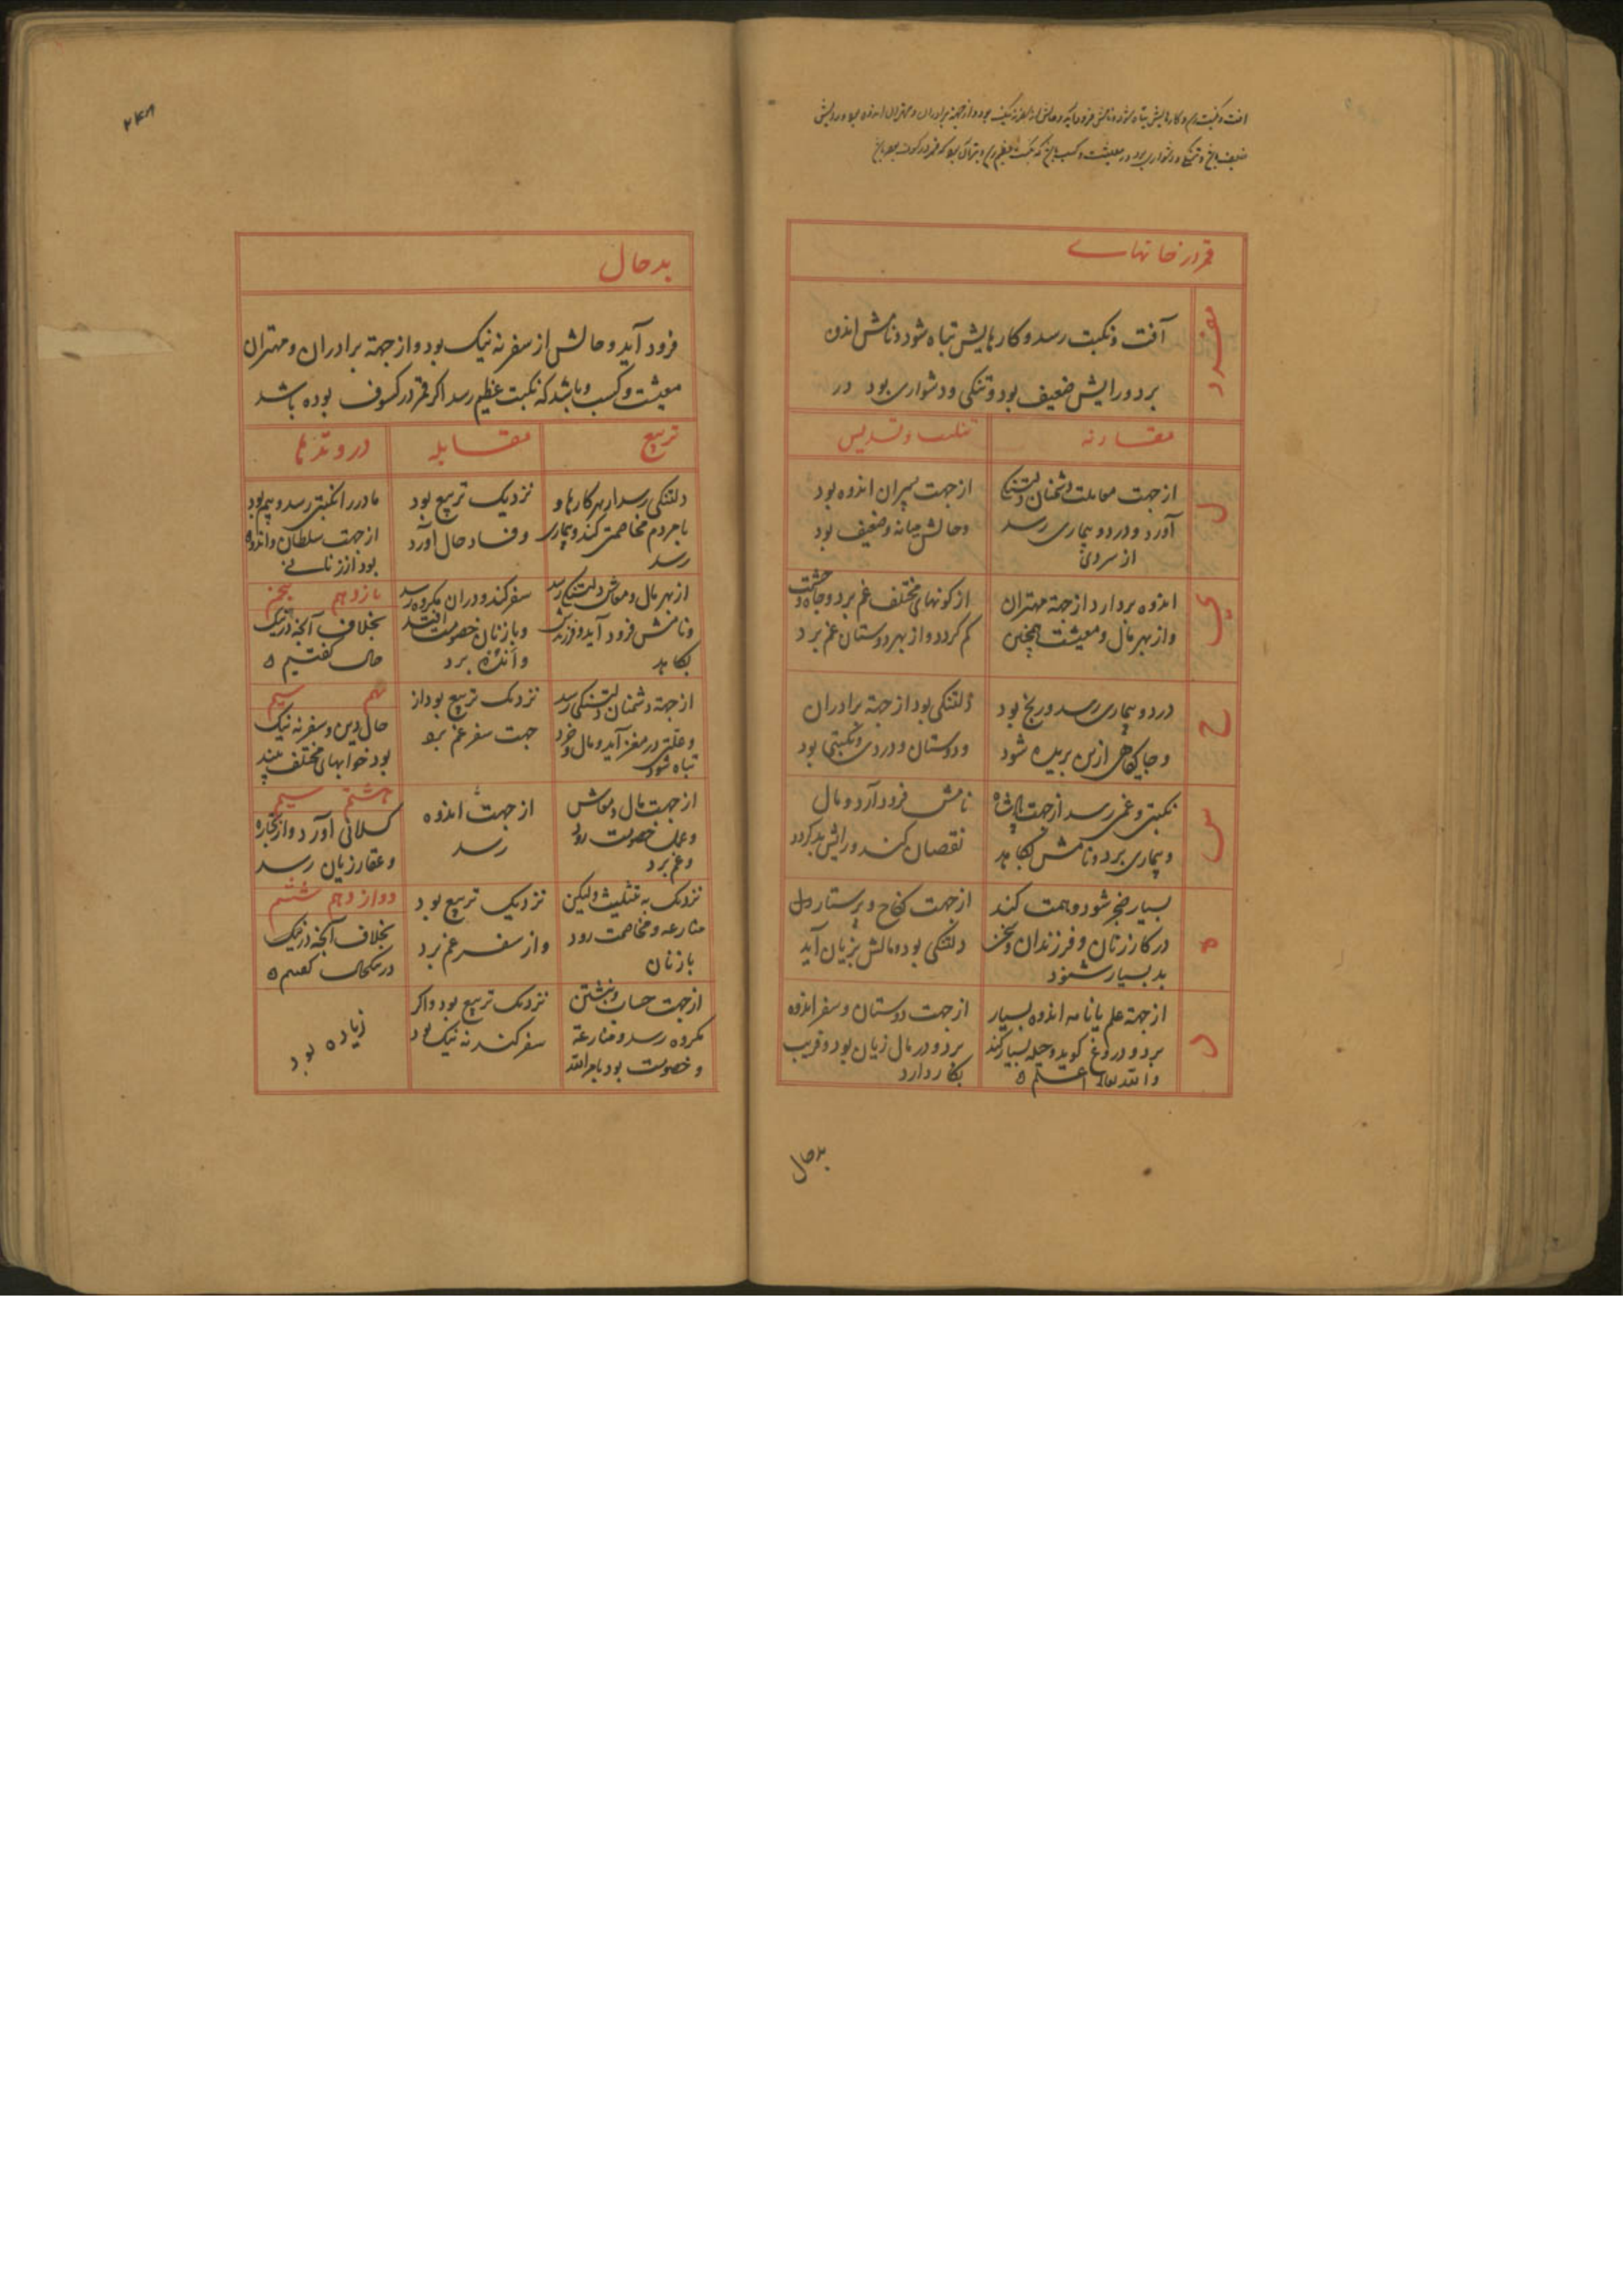 آفت و نکبت رسد و کارهایش تباه شود و نامش فرود آید و حالش از سفر نه نیک بود و از جهة برادران و مهتران اندوه برد و رایش
ضعیف و تنکی و دشواری بود در معیشت و کسب که نکبت عظیم رسد
قمر در خانهاے
مفرد
آفت و نکبت رسد و کارهایش تباه شود و نامش اندوه
برد و رایش ضعیف بود و تنکی و دشواری بود در
مقارنه
تثلیث و تسدیس
ل
از جهت معاملت دشمنان دلتنکی
آورد و درد و بیماری رسد
از سردی
از جهت پیران اندوه بود
و حالش میانه و ضعیف بود
ی
اندوه بردارد از جهة مهتران
و از بهر مال و معیشت همچنین
از کونهای مختلف غم برد و جاه و حشمت
کم کردد و از بهر دوستان غم برد
خ
درد و بیماری رسد و رنج بود
و جایکاهی از تن بریده شود
دلتنکی بود از جهة برادران
و دوستان و دردی و نکبتی بود
س
نکبتی و غمی رسد از جهت پادشاه
و بیماری برد و نامش بکاهد
نامش فرود آرد و مال
نقصان کند و رایش بد کردد
ه
بسیار ضجر شود و تهمت کند
در کار زنان و فرزندان و سخن
بد بسیار شنود
از جهت نکاح و پرستار دل
دلتنکی بود و مالش بزیان آید
د
از جهة علم یا نامه اندوه بسیار
برد و دروغ کوید و حیله بسیار کند
والله تعالی اعلم ه
از جهت دوستان و سفر اندوه
برد و در مال زیان بود و فریب
بکار دارد
بدحال
۲۴۸
بدحال
فرود آید و حالش از سفر نه نیک بود و از جهة برادران و مهتران
معیشت و کسب و باشد که نکبت عظیم رسد اکر قمر در کسوف بوده باشد
تربیع
مقابله
در وتدها
دلتنکی رسد از بهر کارها و
با مردم مخاصمت کند و بیماری
رسد
نزدیک تربیع بود
و فساد حال آورد
مادر را نکبتی رسد و بیم بود
از جهت سلطان و اندوه
بود از زنان
از بهر مال و معاش دلتنکی رسد
و نامش فرود آید و فرزندش
بکاهد
سفر کند و در آن مکروه رسد
و با زنان خصومت افتد
و اندوه برد
یازدهم پنجم
بخلاف آنچه در نیک
حال کفتیم ه
از جهة دشمنان دلتنکی رسد
و علتی در مغز آید و مال و خرد
تباه شود
نزدیک تربیع بود از
جهت سفر غم برد
نهم سیم
حال دین و سفر نه نیک
بود خوابهای مختلف بیند
از جهت مال و معاش
و عمل خصومت رود
و غم برد
از جهت اندوه
رسد
هشتم سیم
کسلانی آورد و از تجاره
و عقار زیان رسد
نزدیک به تثلیث ولیکن
منازعه و مخاصمت رود
با زنان
نزدیک تربیع بود
و از سفر غم برد
دوازدهم ششم
بخلاف آنچه در نیک
در نیکحال کفتیم ه
از جهت حساب و نبشتن
مکروه رسد و منازعة
و خصومت بود بامرالله
نزدیک تربیع بود و اکر
سفر کند نه نیک بود
زیاده بود